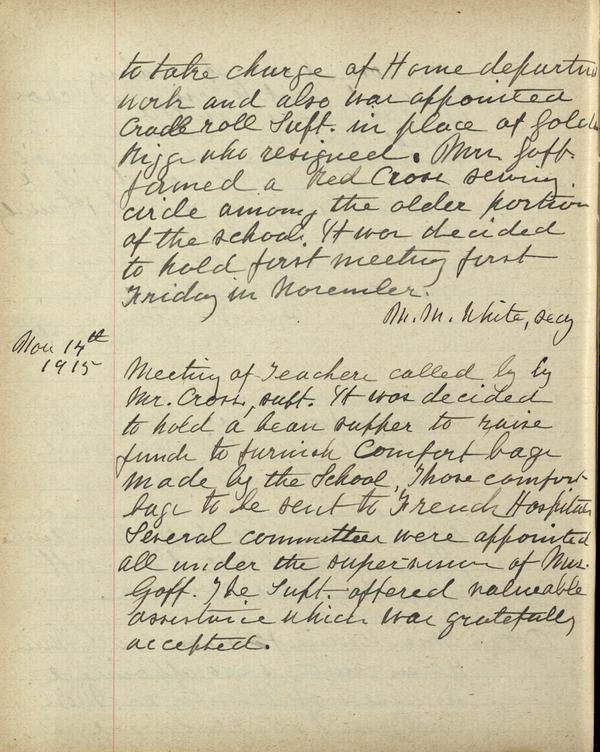 to take charge of Home departm
work and also was appointed
Cradle roll Supt. in place of Gold
Riggs who resigned. Mrs. Goff
formed a Red Cross sewing
circle among the older portion
of the school. It was decided
to hold first meeting first
Friday in November.
M. M. White, secy
Nov 14th
1915
Meeting of Teachers called by by
Mr. Cross, supt. It was decided
to hold a bean supper to raise
funds to furnish Comfort bags
made by the School, Those comfort
bags to be sent to French Hospitals
Several committees were appointed
all under the supervision of Mrs.
Goff. The Supt. offered valueable
assistance which was gratefully
accepted.